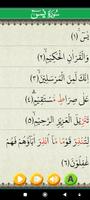 سُورَةُ يٰسٓ
يٰسٓ ﴿١﴾
وَالْقُرْاٰنِ الْحَكِيْمِ ﴿٢﴾
اِنَّكَ لَمِنَ الْمُرْسَلِيْنَ ﴿٣﴾
عَلٰى صِرَاطٍ مُّسْتَقِيْمٍ ﴿٤﴾
تَنْزِيْلَ الْعَزِيْزِ الرَّحِيْمِ ﴿٥﴾
لِتُنْذِرَ قَوْمًا مَّاۤ اُنْذِرَ اٰبَآؤُهُمْ فَهُمْ
غٰفِلُوْنَ ﴿٦﴾